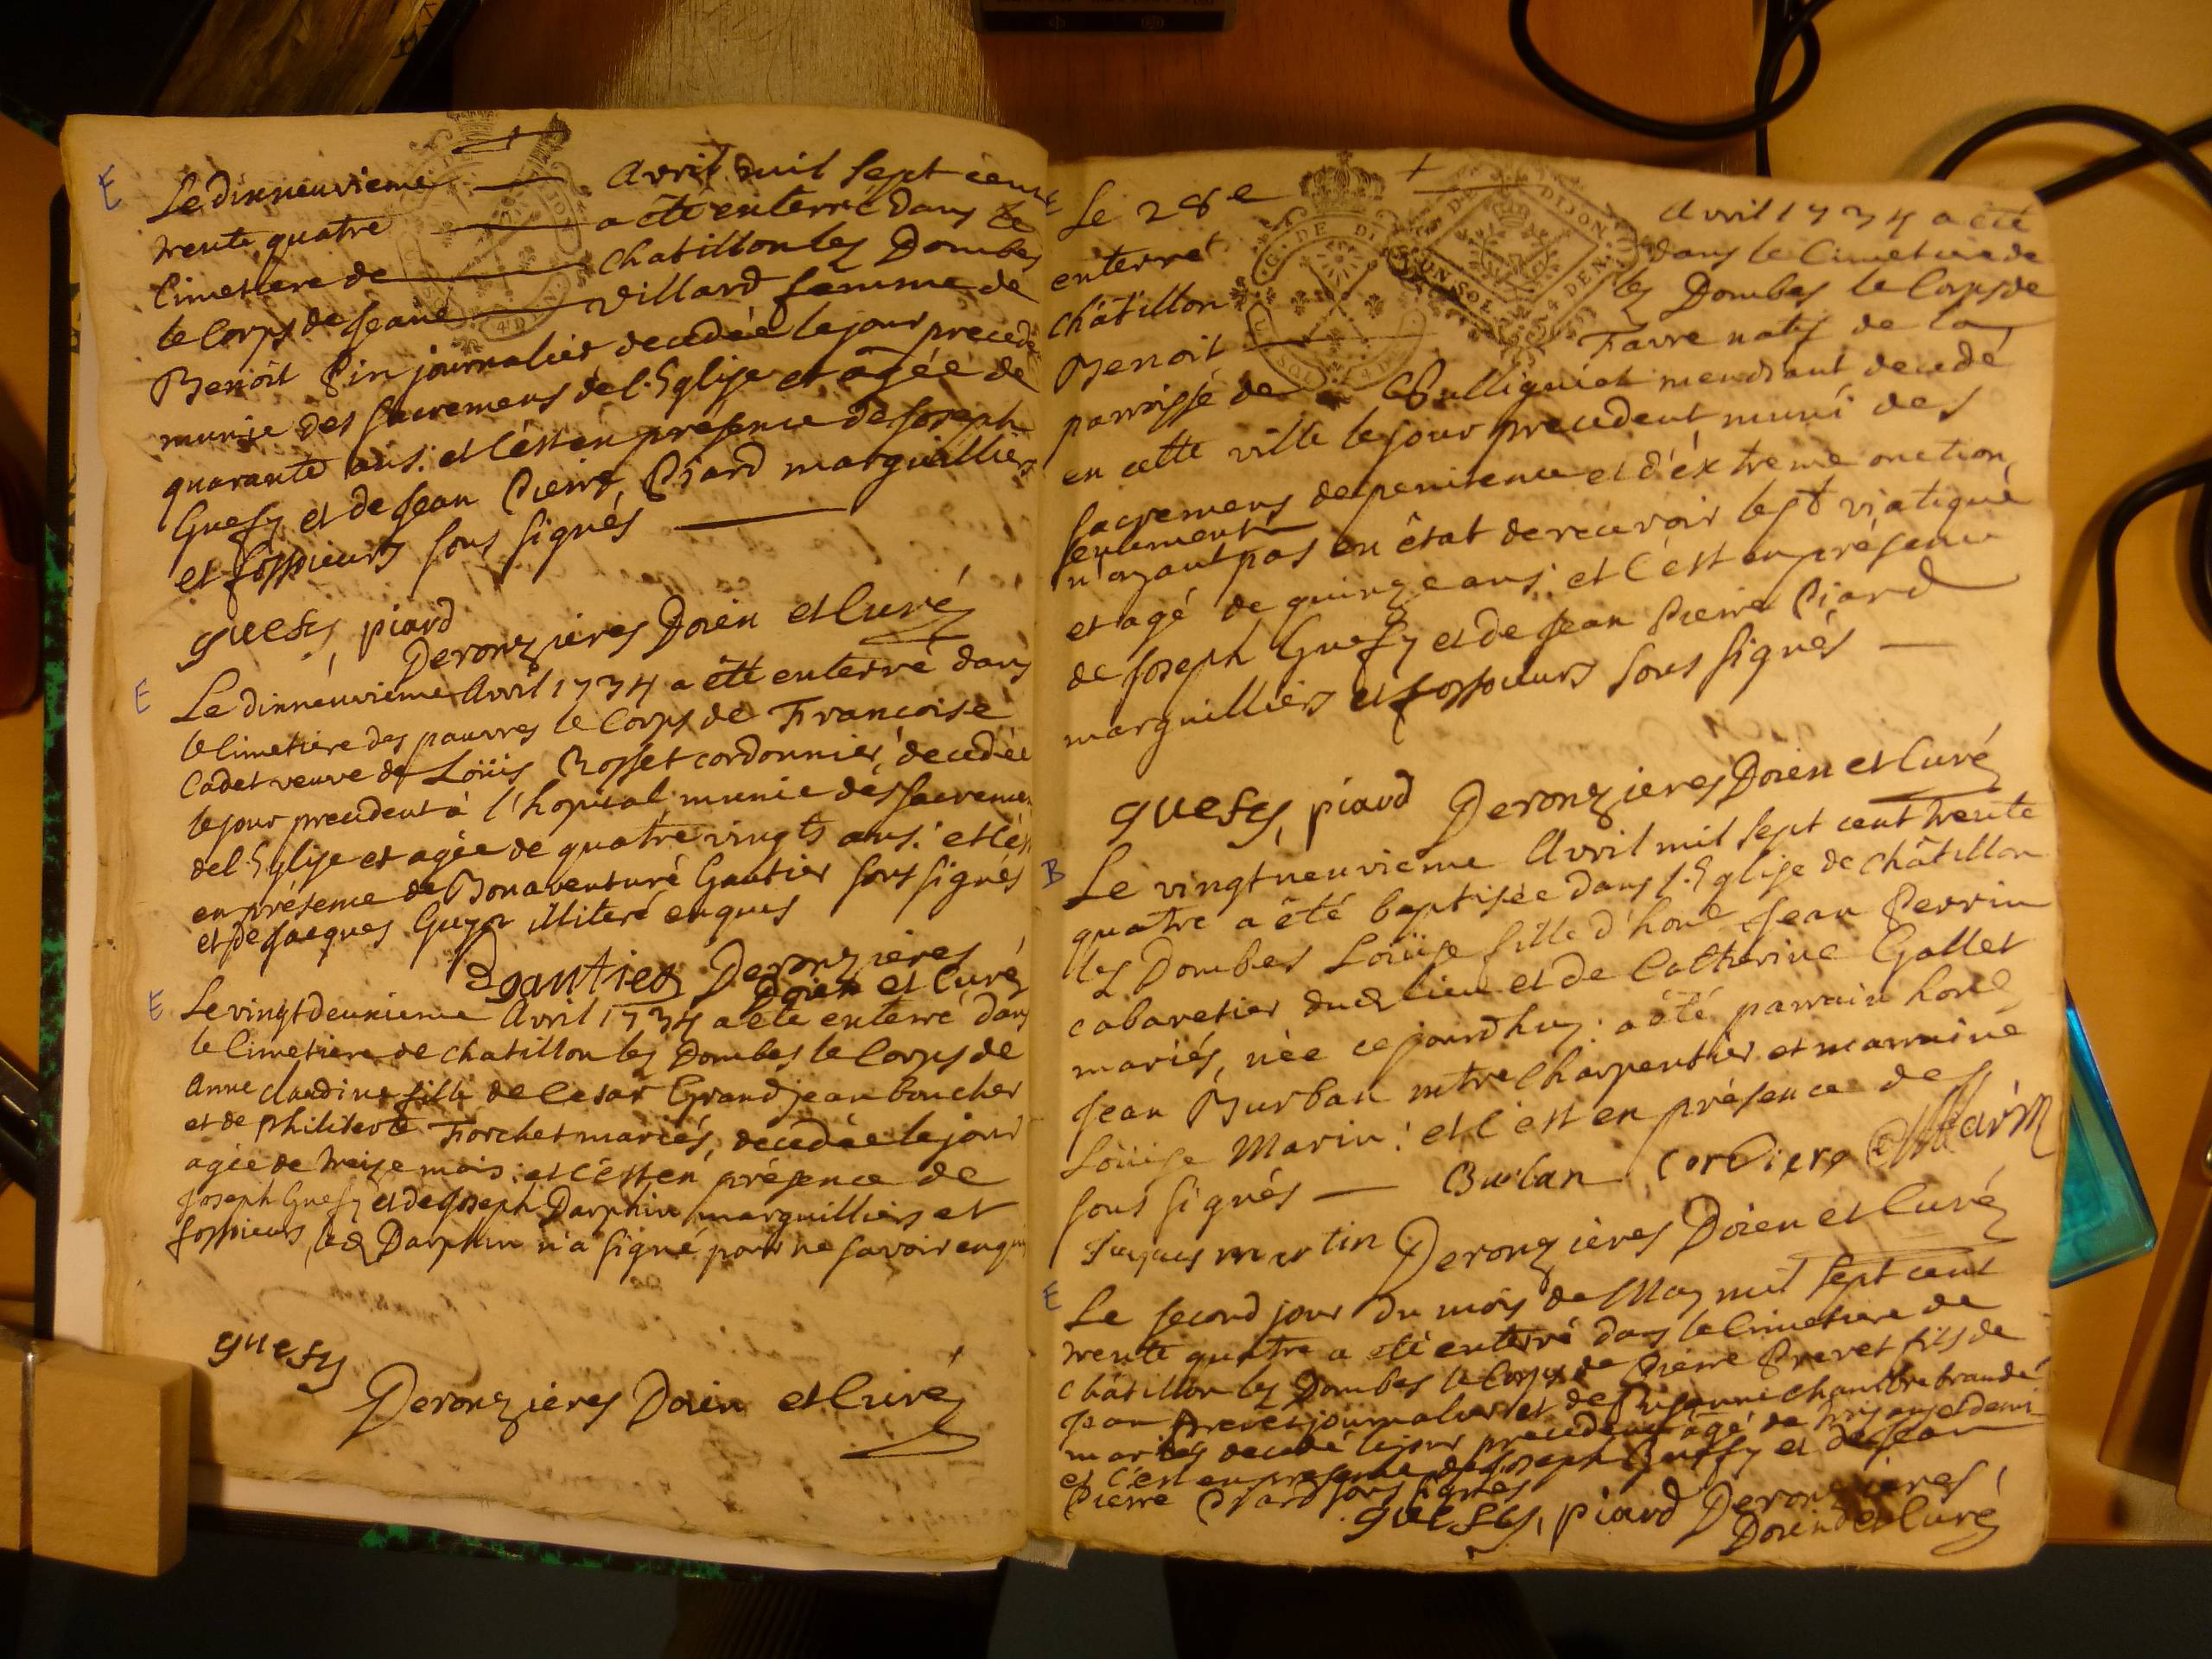 E
Le dixneuvieme — Avril mil sept cens
trente quatre — a été enterré dans le
Cimetiere de — Chatillon les Dombes
le Corps de Jeane — Villard femme de
Benoit Pin journalier decedée le jour preced
munie des sacremens de l'Eglise et agée de
quarante ans. et c'est en présence de Joseph
Guefy et de Jean Pierre Piard marguilliers
et fossoieurs sous signés —
guefy, piard
Deronzieres Doien et Curé
E
Le dixneuvieme Avril 1734 a été enterré dans
le Cimetiere des pauvres le Corps de Francoise
Cadet veuve de Loüis Rosset cordonnier, decedée
le jour precedent à l'hopital munie des sacremen
de l'Eglise et agée de quatre vingts ans. et c'es
en présence de Bonaventure Gautier sous signés
et de Jacques Guyor illiteré enquis
Bgautier Deronzieres
Doien et Curé
E
Le vingt deuxieme Avril 1734 a été enterré dans
le Cimetiere de chatillon les Dombes le Corps de
Anne Claudine fille de Cesar Grandjean boucher
et de philiberte Forchet mariés, decedée le jour
agée de treize mois. et c'est en présence de
Joseph Guefy et de Joseph Darphin marguilliers et
fossieurs led Darphin n'a signé pour ne savoir enquis
guefy
Deronzieres Doien et Curé
E
Le 28e — Avril 1734 a été
enterré dans le Cimetiere de
châtillon les Dombes le Corps de
Benoit — Favre natif de la
parroisse de mendiant decedé
en cette ville le jour precedent muni des
sacremens de penitence et d'éxtreme onction
seulement
n'ayant pas en état de recevoir le st viatique
et agé de quinze ans. et c'est en présence
de Joseph Guefy et de Jean Pierre Piard
marguilliers et fossoieurs sous signés —
guefy, piard Deronzieres Doien et Curé
B
Le vingt neuvieme Avril mil sept cent trente
quatre a été baptisée dans l'Eglise de châtillon
les Dombes Loüise fille d'hond Jean Perrin
cabaretier dud lieu et de Catherine Gallet
mariés, née ce jourdhuy. a été parrain hond
Jean Burban mtre Charpentier et marraine
Loüise Marin. et c'est en présence des
sous signés — Burlan Cordiere Marin
Jaques martin Deronzieres Doien et Curé
E
Le second jour du mois de May mil sept cent
trente quatre a été enterré dans le Cimetiere de
Châtillon les Dombes le Corps de Pierre Prevet fils de
Jean Prevet journalier et de chambrebraude
mariés decedé le jour precedent agé de trois ans et demi
et c'est en présence de Joseph Gueffy et de Jean
Pierre Piard sous signés
guefy, piard Deronzieres
Doien et Curé